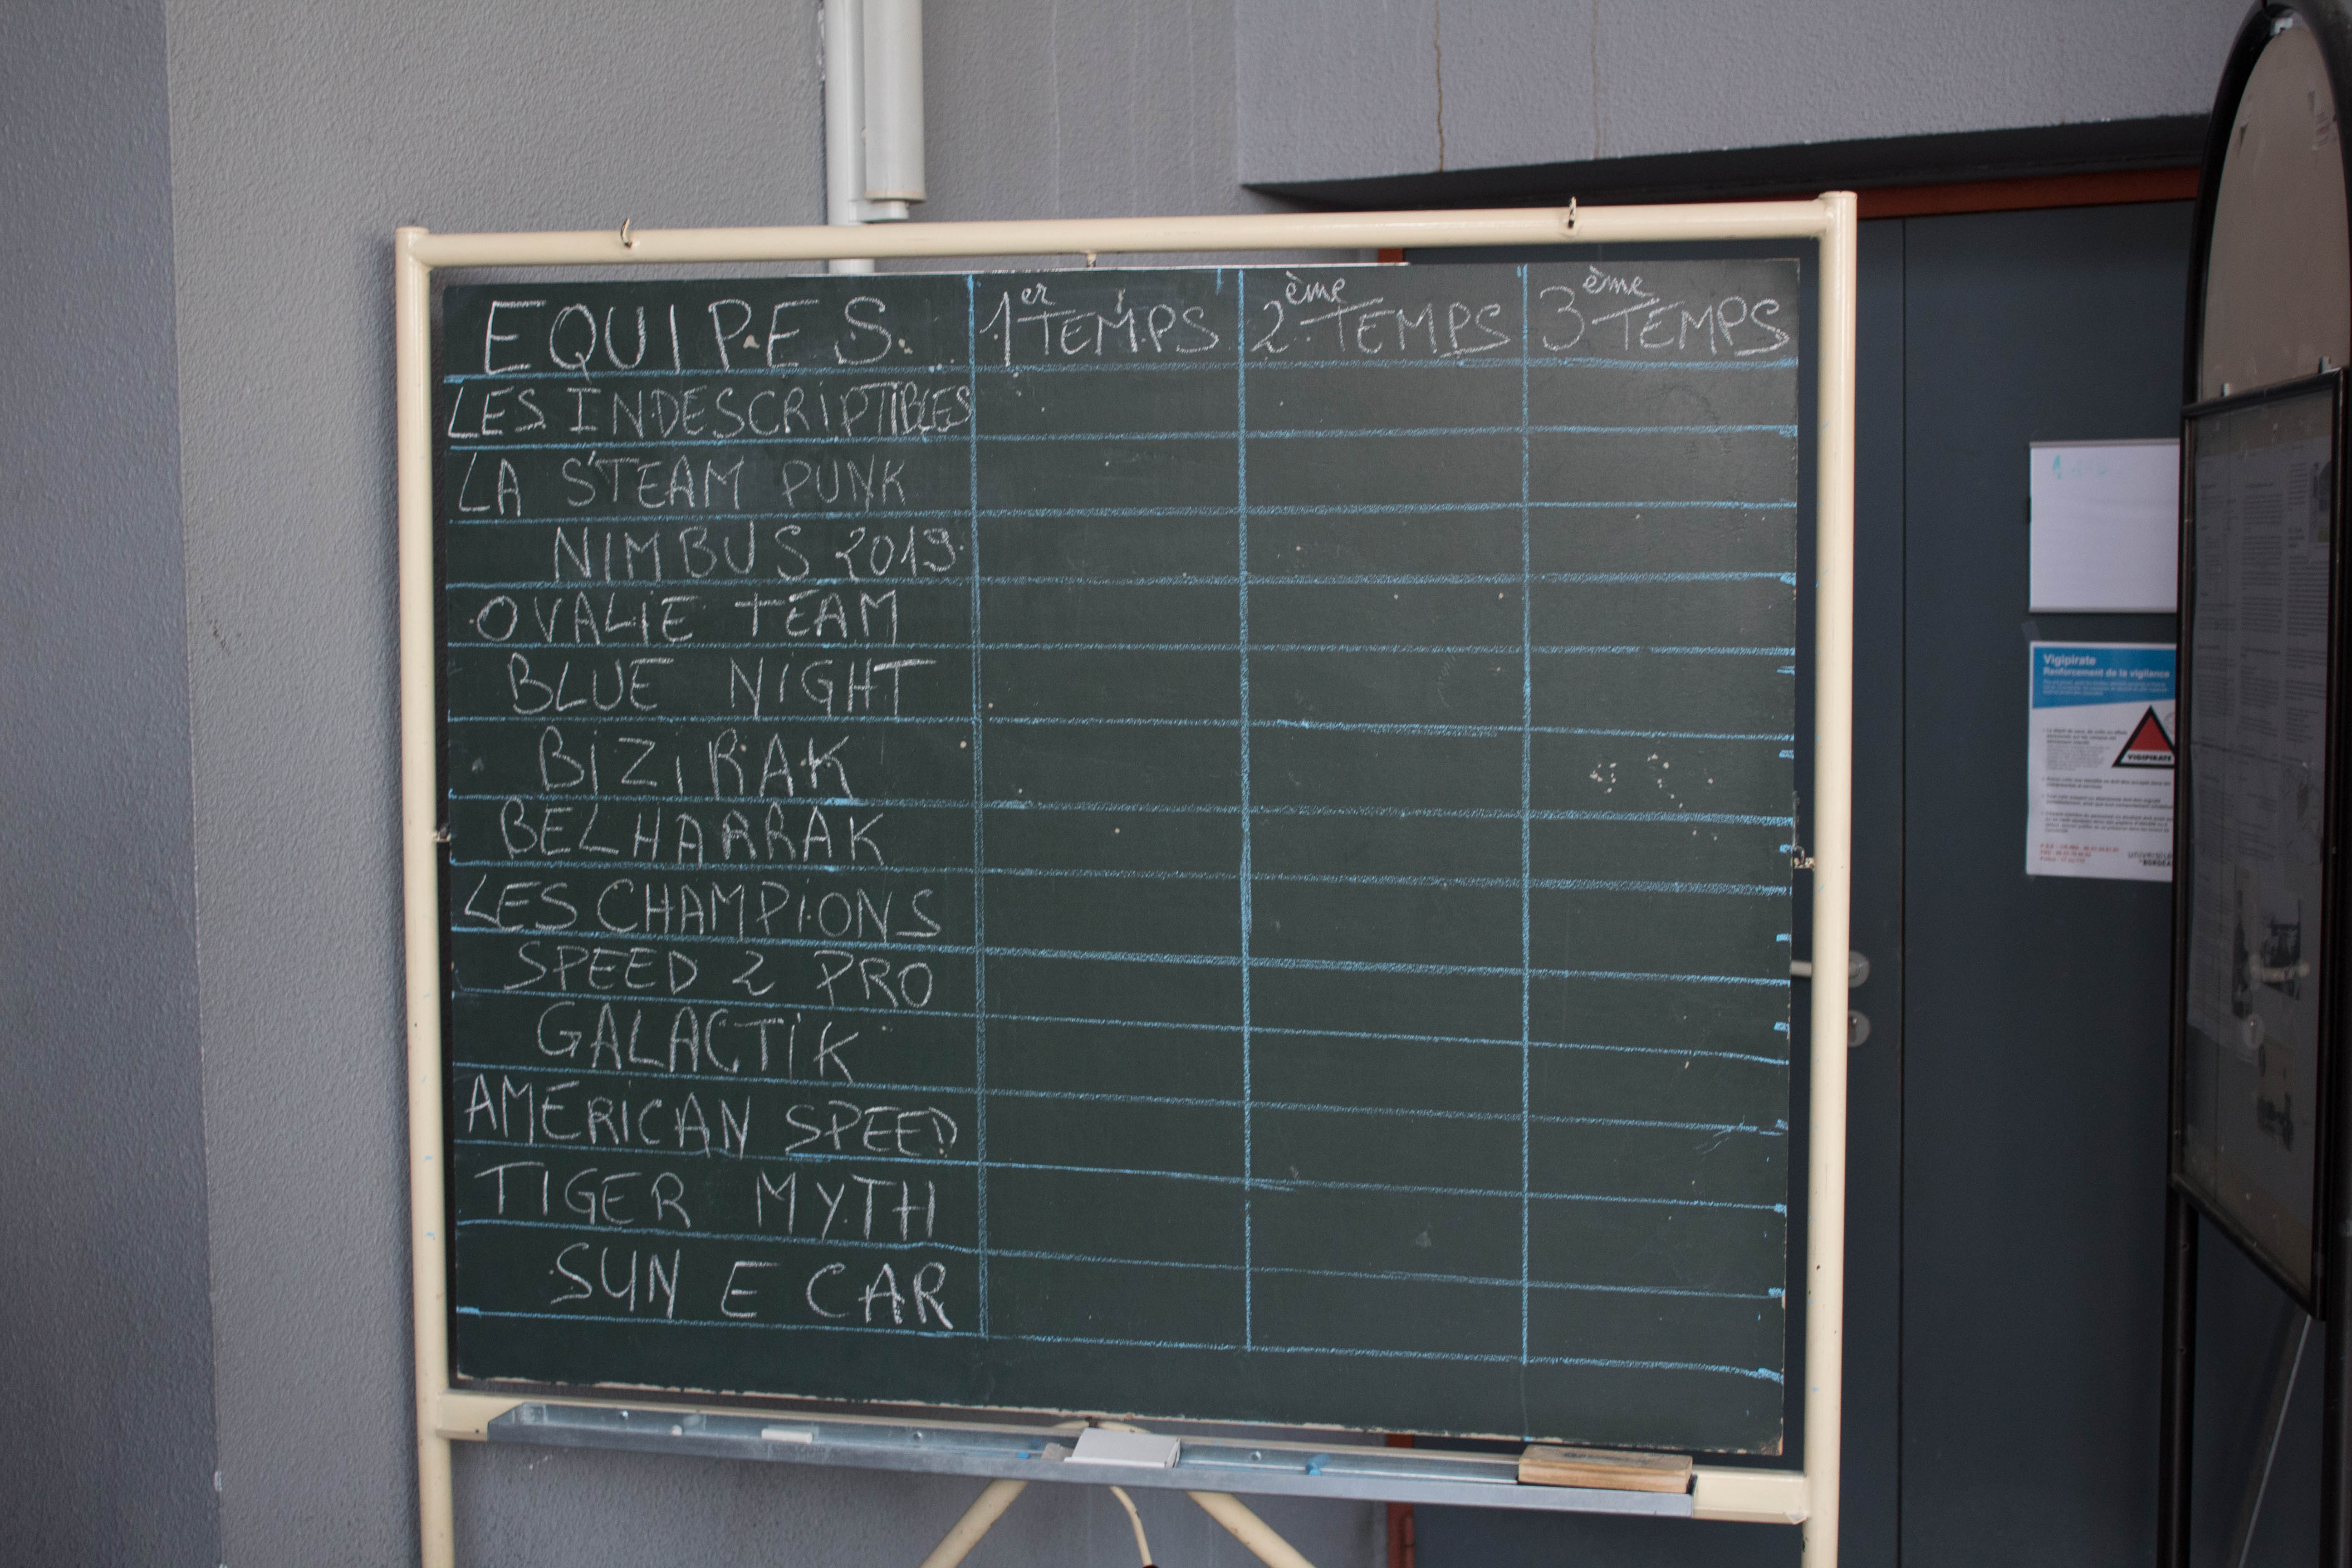 EQUIPES 1er TEMPS 2ème TEMPS 3ème TEMPS
LES INDESCRIPTIBLES
LA S'TEAM PUNK
NIMBUS 2019
OVALIE TEAM
BLUE NIGHT
BIZIRAK
BELHARRAK
LES CHAMPIONS
SPEED 2 PRO
GALACTIK
AMERICAN SPEED
TIGER MYTH
SUN E CAR
Vigipirate
Renforcement de la vigilance
VIGIPIRATE